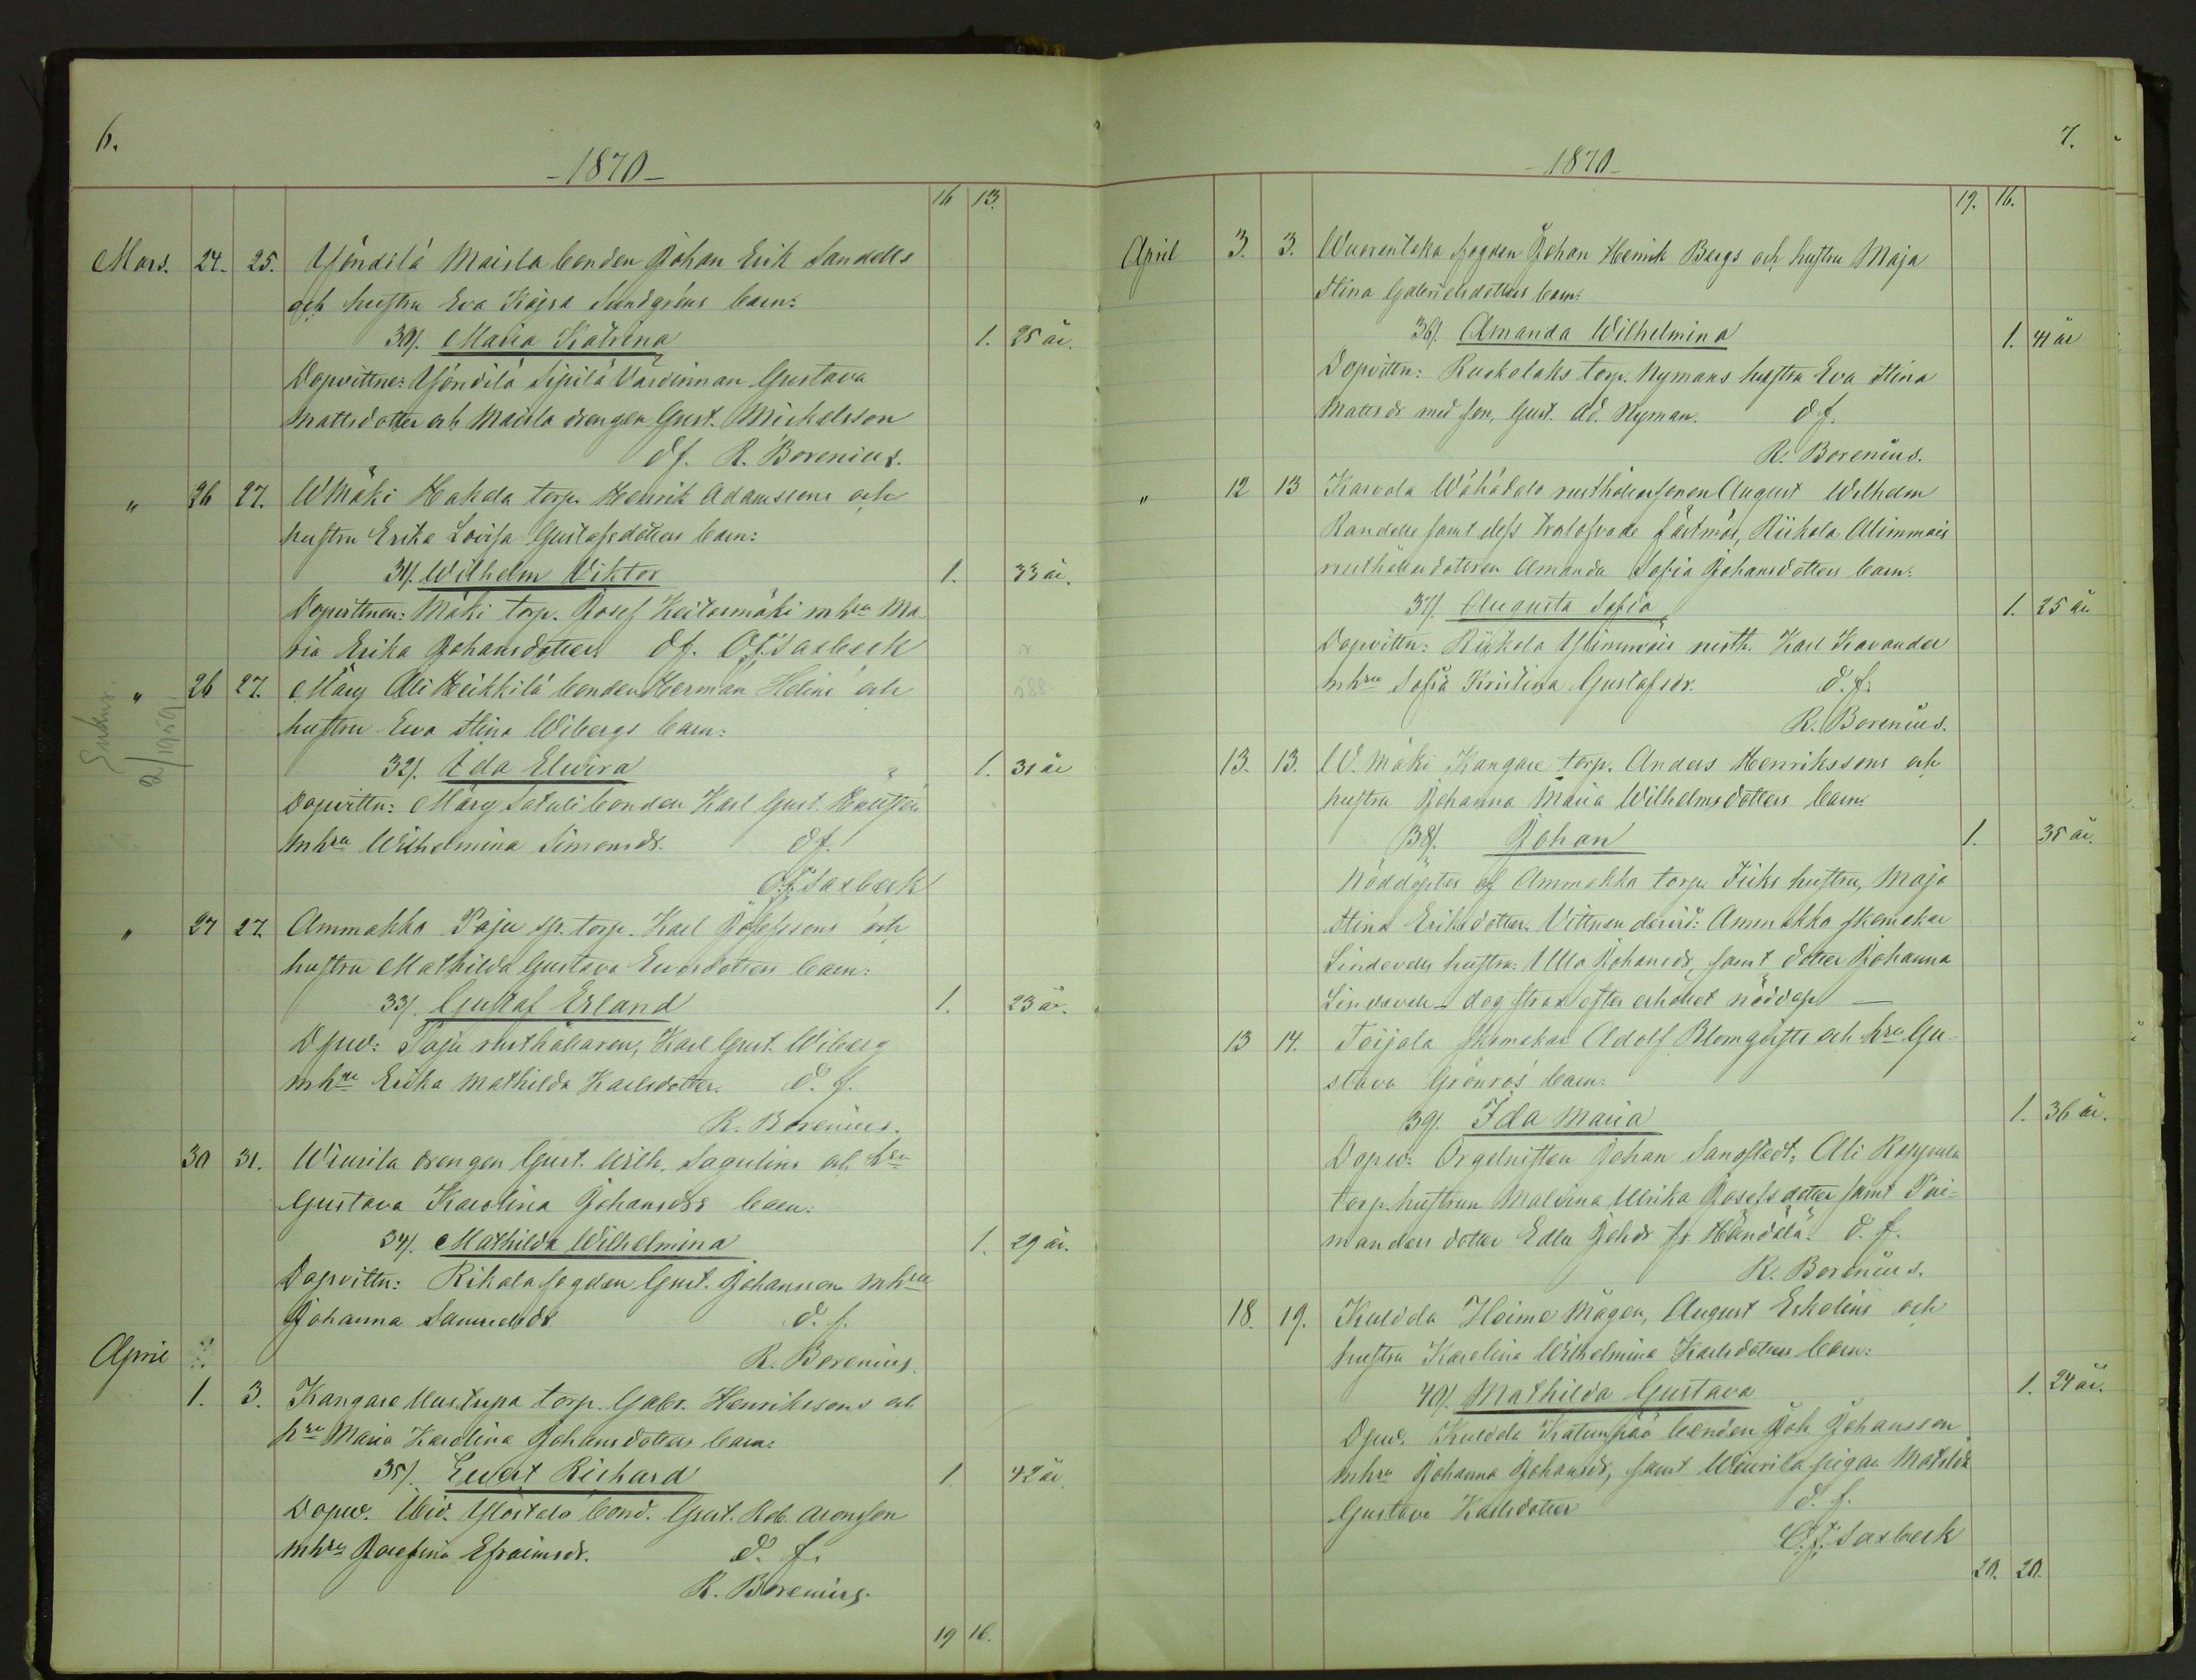 6.
-1870-
16 13.
Mars. 24. 25. Yöndilä Maisla bonden Johan Erik Sandells
och hustru Eva Kajsa Sundgréns barn:
30). Maria Katrina 1. 25 år.
Dopvittne: Yöndilä Sipilä Värdinnan Gustava
Mattsdotter och Maisla drengen Gust. Mickelsson
d f. R. Borenius.
" 26 27. WMäki Hakala torp. Henrik Adamssons och
hustru Erika Lovisa Gustafsdotters barn:
31). Wilhelm Viktor 1. 33 år.
Dopvittnen: Mäki torp. Josef Keitasmäki mhru Ma
ria Erika Johansdotter. d f. O.F. Saxbeck
" 26 27. Märy Ali Heikkilä bonden Herman Helins och
hustru Eva Stina Wibergs barn:
32). Ida Elvira 1. 31 år
Dopvittn: Märy Satuli bonden Karl Gust.
mhru Wilhelmina Simonsdr. d f.
O.F. Saxbeck
" 27 27. Ammakko Paju sp. torp. Karl Josefssons och
hustru Mathilda Gustava Evasdotters barn:
33). Gustaf Erland 1. 23 år.
Dpw: Paju rusthållaren, Karl Gust. Wiberg
mhru Erika Mathilda Karlsdotter. d. f.
R. Borenius.
30 31. Wiurila drengen Gust. Wilh. Sagulins och hru
Gustava Karolina Johansdrs barn:
34). Mathilda Wilhelmina 1. 29 år.
Dopvittn: Rikala fogden Gust. Johansson mhru
Johanna Samuelsdr d. f.
R. Borenius.
April
1. 3. Kangare Uustupa torp. Gabr. Henrikssons och
hru Maria Karolina Johansdotters barn:
35). Evert Richard 1 42 år
Dopw. Yliostalo bond. Gust. Rob. Aronsson
mhru Josefina Efraimsdr. d. f.
R. Borenius.
19 16.
7.
-1870-
19. 16.
April 3. 3. Wuorentaka fogden Johan Henrik Bergs och hustru Maja
Stina Gabrielsdotters barn:
36). Amanda Wilhelmina 1. 41 år
Dopvittn: Ruokolaks torp. Nymans hustru Eva Stina
Mattsdr med son, Gust. Ad. Nyman. d f.
R. Borenius.
" 12 13 Karvola Wähätalo rusthållarsonen August Wilhelm
Randells samt dess trolofvade fästmös, Riikola Alimmais
rusthållardotteren Amanda Sofia Johansdotters barn:
37). Augusta Sofia 1. 25 år
Dopvittn: Riikola Ylimmäis rusth. Karl Kavander
mhru Sofia Kristina Gustafsdr. d. f.
R. Borenius.
13. 13. W. Mäki Kangare torp. Anders Henrikssons och
hustru Johanna Maria Wilhelmsdotters barn:
38). Johan 1. 35 år.
Nöddöptes af Ammakko torp. Fiks hustru, Maja
Stina Eriksdotter. Vittnen dervid: Ammakko skomakar
Lindevalls hustru: Ulla Johansdr, samt dotter Johanna
Lindevall - dog strax efter erhållet nöddop -
13 14. Toijala skomakar Adolf Blomqvists och hru Gu-
stava Grönros barn:
39). Ida Maria 1. 36 år.
Dopw: Orgelnisten Johan Sandstedt, Ali Roppula
torp. hustrun Malvina Ulrika Josefsdotter samt Pai-
manders dotter Edla Johdr fr Händälä. d. f.
R. Borenius.
18. 19. Kulvola Hoime mågen, August Eskolins och
hustru Karolina Wilhelmina Karlsdotters barn:
40). Mathilda Gustava 1. 24 år.
Dpw. Kulvola Katumpää bonden Joh Johansson
mhru Johanna Johansdr, samt Wiurila pigan Matilda
Gustava Karlsdotter d. f.
O.F. Saxbeck
20. 20.